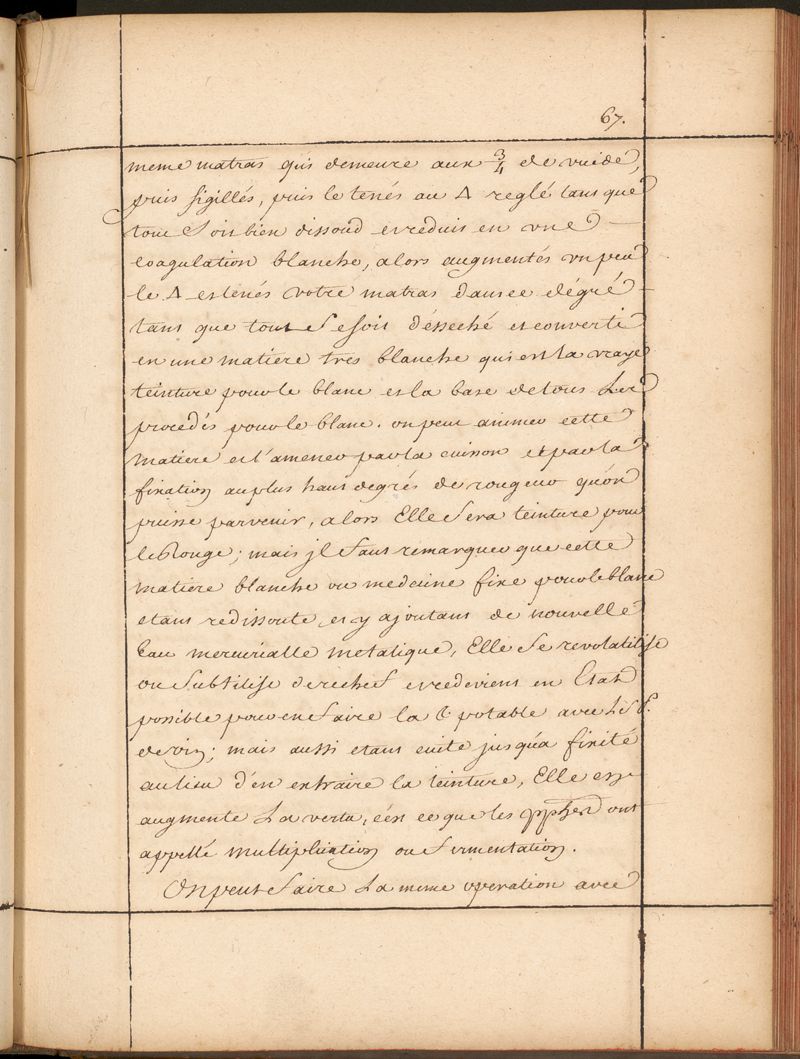 67.
meme matras qui demeure aux 3/4 de vuide,
puis sigillés, puis le tenés au △ reglé tans que
tout soit bien dissoud et reduit en vne
coagulation blanche, alors augmentés vn peu
le △ et tenés votre matras dans ce dégré
tans que tout se soit désseché et converti
en une matiere tres blanche qui est la vraye
teinture pour le blanc et la base de tous les
procedés pour le blanc. on peut animer cette
matiere et l'amener par la cuisson et par la
fixation au plus haut degrés de rougeur qu'on
puisse parvenir, alors Elle sera teinture pour
le Rouge; mais jl faut remarquer que cette
matiere blanche ou medecine fixe pour le blanc
etant redissoute et y ajoutant de nouvelle
Eau mercurialle metalique, Elle se revolatilise
ou subtilise derechef et redevient en Etat
possible pour en faire la ☾ potable avec l'esp.
de vin; mais aussi etant cuite jusqu'a fixité
au lieu d'en extraire la teinture, Elle en
augmente la vertu, c'est ce que les pphes ont
appellé multiplication ou fermentation.
On peut faire la meme operation avec